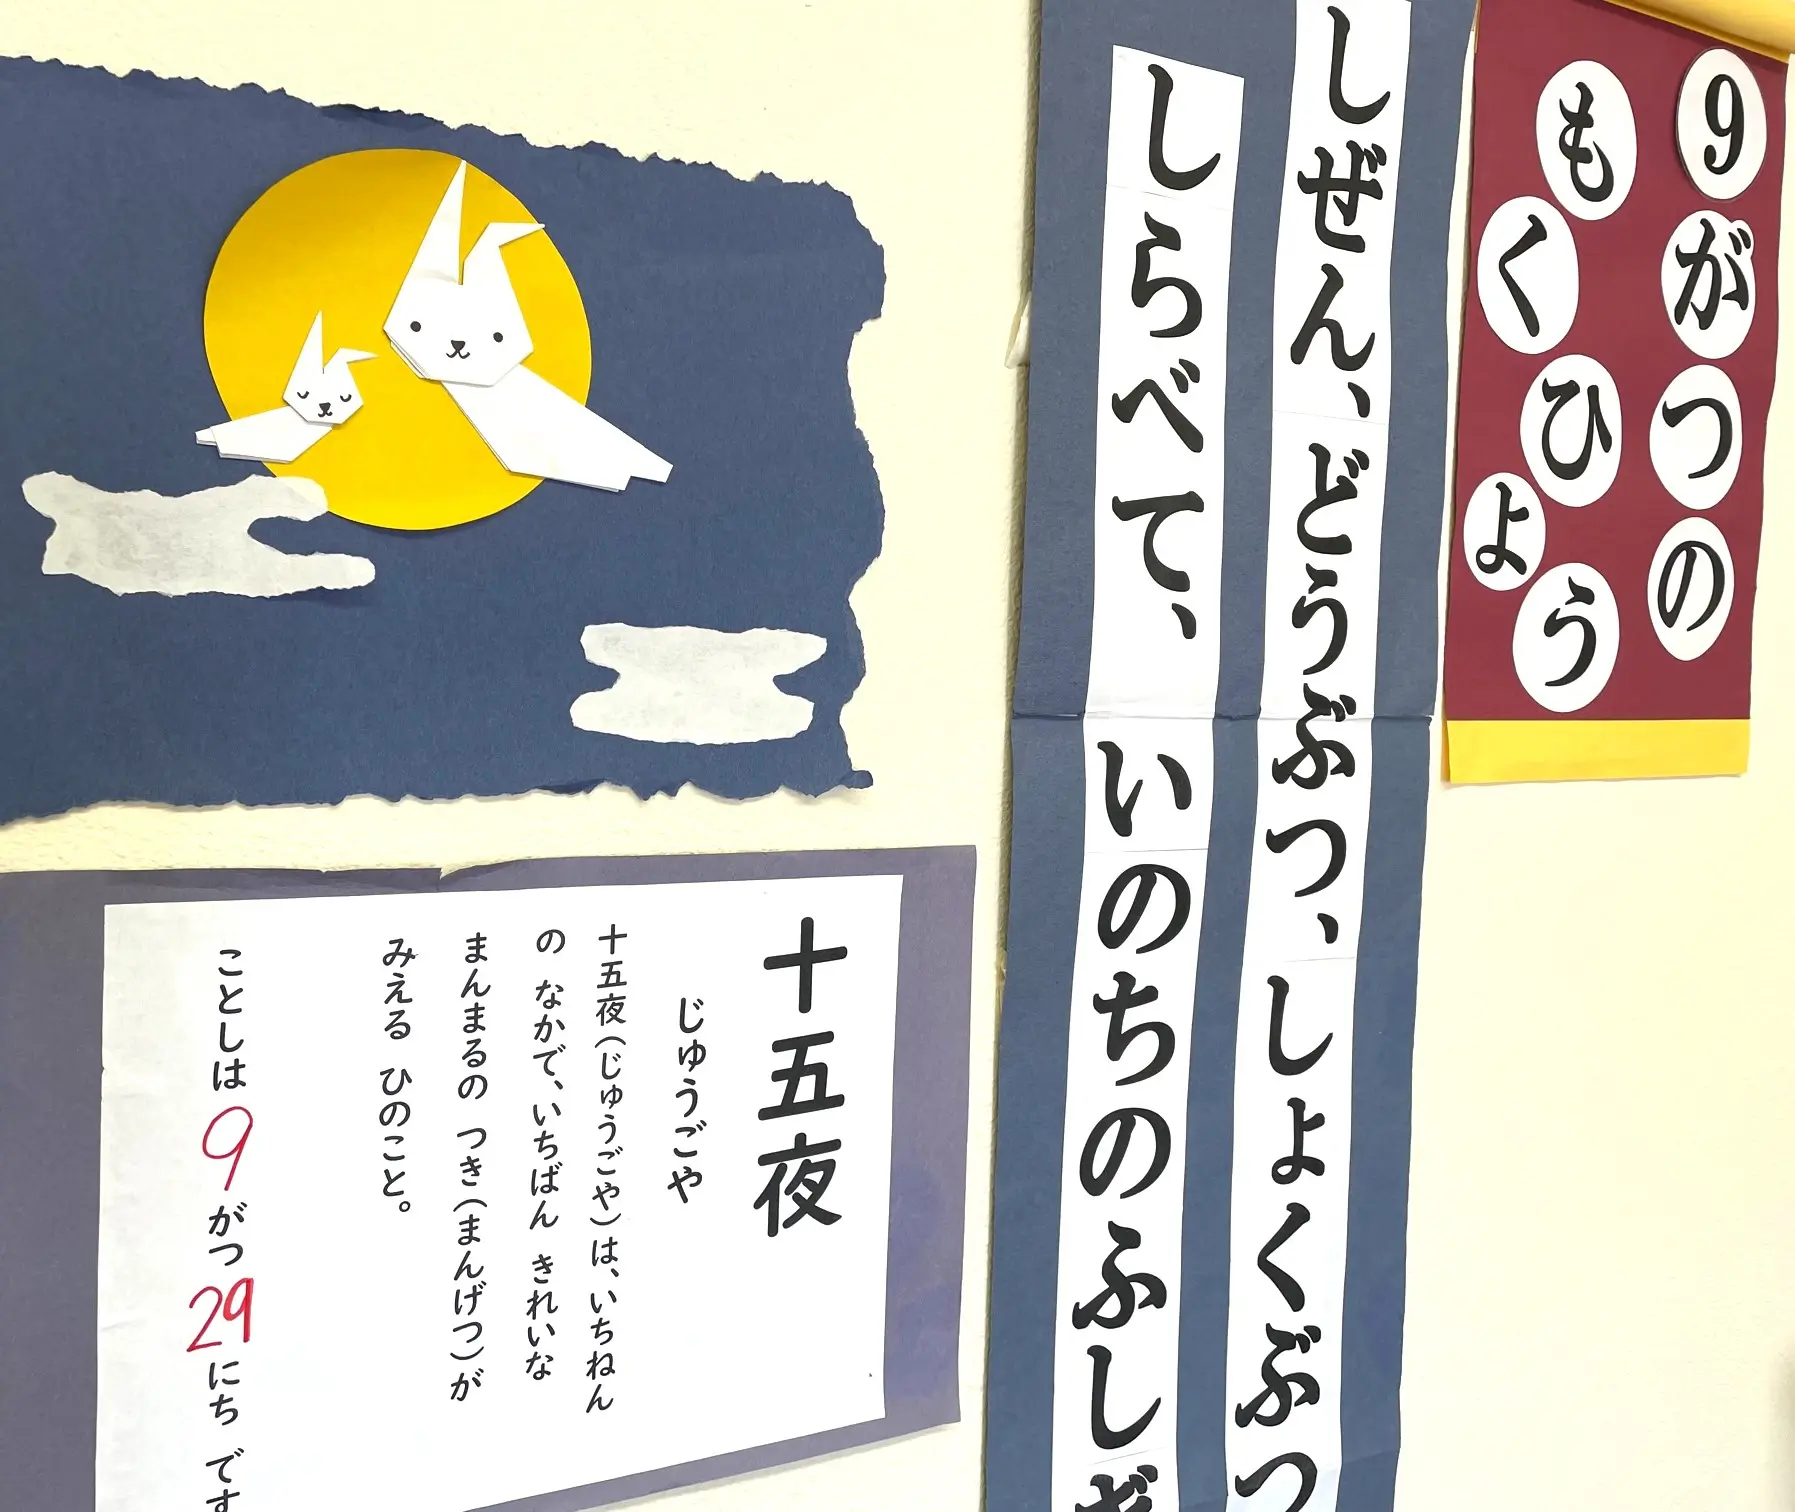 9がつの
もくひょう
しぜん、どうぶつ、しょくぶつ
しらべて、いのちのふしぎ
十五夜
じゅうごや
十五夜(じゅうごや)は、いちねん
の なかで、いちばん きれいな
まんまるの つき(まんげつ)が
みえる ひのこと。
ことしは 9がつ 29にち です